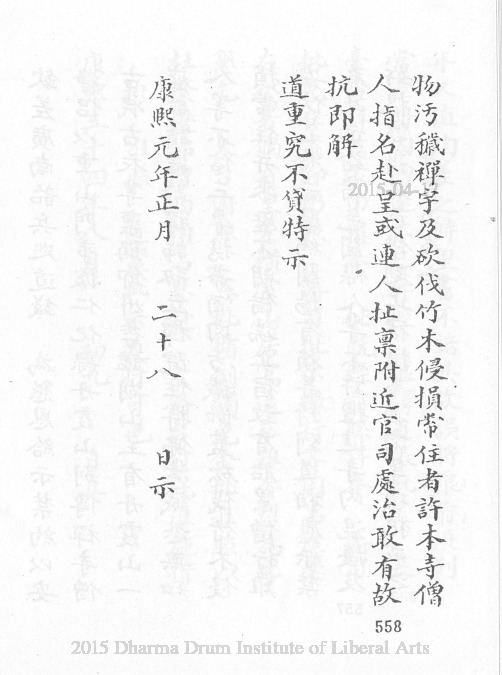 物汚穢禪宇及砍伐竹木侵損常住者許本寺僧
人指名赴呈或連人扯稟附近官司處治敢有故
抗即解
道重究不貸特示
康熙元年正月　二十八　日示
558
2015 Dharma Drum Institute of Liberal Arts